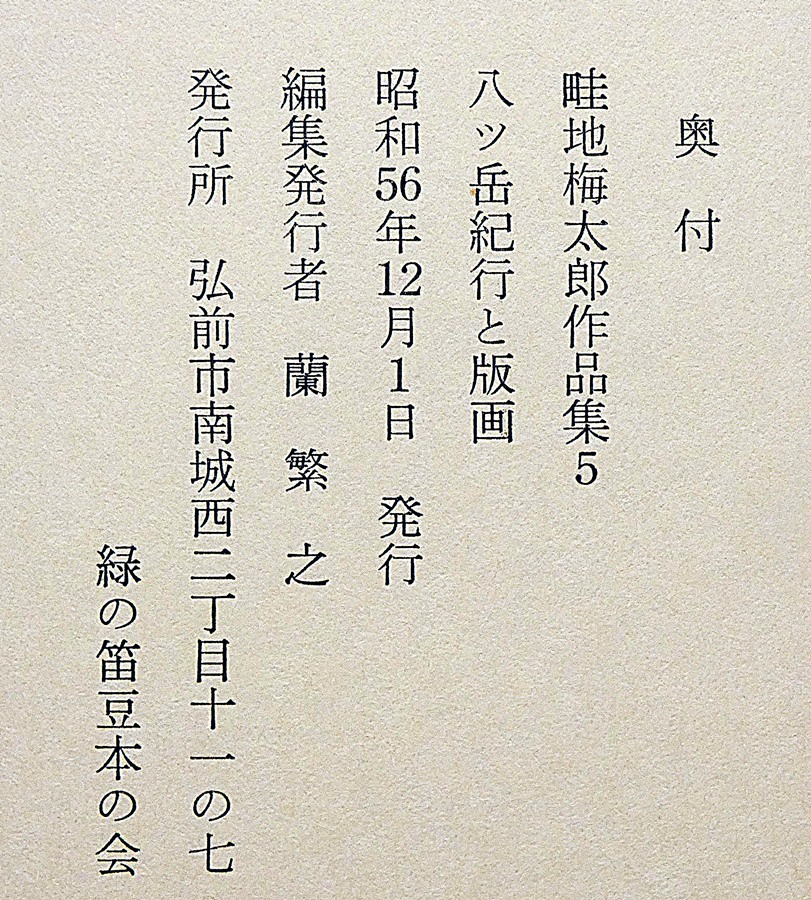 奥付
畦地梅太郎作品集5
八ツ岳紀行と版画
昭和56年12月1日 発行
編集発行者 蘭繁之
発行所 弘前市南城西二丁目十一の七
緑の笛豆本の会